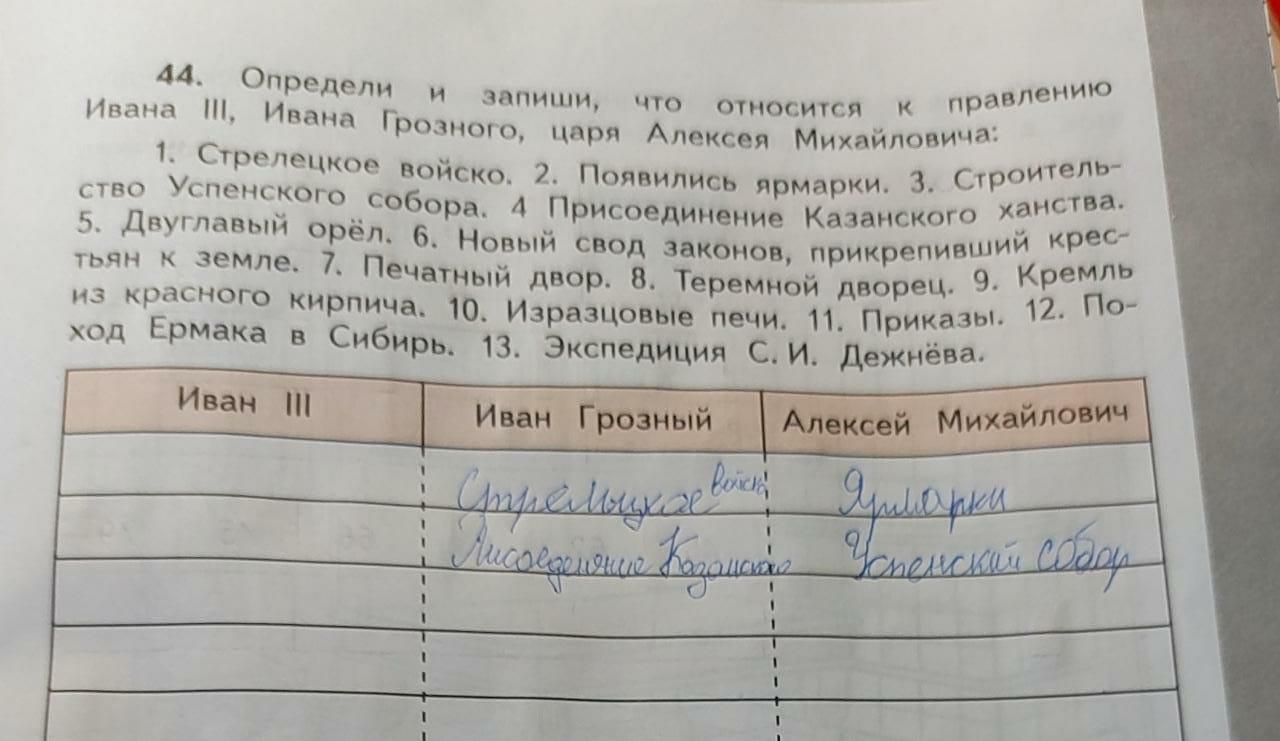 44. Определи и запиши, что относится к правлению
Ивана III, Ивана Грозного, царя Алексея Михайловича:
1. Стрелецкое войско. 2. Появились ярмарки. 3. Строитель-
ство Успенского собора. 4 Присоединение Казанского ханства.
5. Двуглавый орёл. 6. Новый свод законов, прикрепивший крес-
тьян к земле. 7. Печатный двор. 8. Теремной дворец. 9. Кремль
из красного кирпича. 10. Изразцовые печи. 11. Приказы. 12. По-
ход Ермака в Сибирь. 13. Экспедиция С. И. Дежнёва.
Иван III Иван Грозный Алексей Михайлович
Стрелецкое войско Ярмарки
Казанского Успенский собор